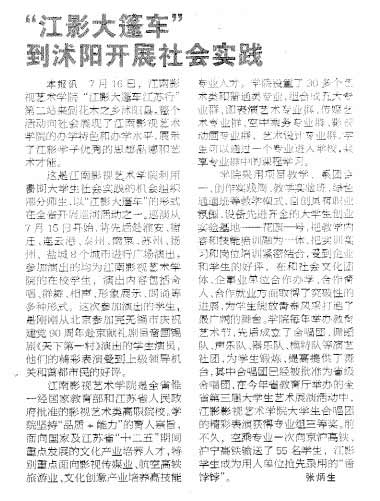 “江影大篷车”
到沭阳开展社会实践
本报讯 7月16日，江南影
视艺术学院“江影大篷车江苏行”
第二站来到花木之乡沭阳县，整个
活动向社会展现了江南影视艺术
学院的办学特色和办学水平，展示
了江影学子优秀的思想品德和艺
术才能。
这是江南影视艺术学院利用
暑期大学生社会实践的机会组织
部分师生，以“江影大篷车”的形式
在全省开展巡演活动之一。巡演从
7月15日开始，将先后赴淮安、宿
迁、连云港、泰州、南京、苏州、扬
州、盐城8个城市进行广场演出，
参加演出的均为江南影视艺术学院
的在校学生，演出内容包括合
唱、群舞、相声、形象展示、时尚等
多种形式。这次参加演出的学生，
是刚刚从北京参加完无锡市庆祝
建党90周年赴京献礼剧目锡国锡
剧《天下第一村》演出的学生演员，
他们的精彩表演受到上级领导机
关和首都市民的好评。
江南影视艺术学院是全省唯
一经国家教育部和江苏省人民政
府批准的影视艺术类高职院校，学
院坚持“品质+能力”的育人宗旨，
面向国家及江苏省“十二五”期间
重点发展的文化产业培养人才，特
别重点面向影视传媒业、航空高铁
旅游业、文化创意产业培养高技能
专业人才。学院设置了30多个艺
术类和普通类专业，组合成九大专
业群，即表演艺术专业群、传媒艺
术专业群、空中乘务专业群、影视
动画专业群、艺术设计专业群，学
生可以通过一个专业进入学校，共
享专业群中的课程学习。
学院采用项目教学、集团合
一，创作实践周，教学实验班，绿色
通道班等教学模式，营创真有职业
氛围、设备先进齐全的大学生创业
实验基地——花园一号，把教学内
容和技能培训融为一体，把实训实
习和岗位培训紧密结合，受到企业
和学生的好评。在和社会文化团
体、企事业单位合作办学，合作育
人，合作就业方面取得了突破性的
进展，为学生绽放青春风采打造了
最广阔的舞台。学院每年举办教育
艺术节，先后成立了合唱团、舞蹈
队、声乐队、器乐队、模特队等演艺
社团，为学生锻炼、提高提供了舞
台，其中合唱团已经被批准为省级
合唱团，在今年省教育厅举办的全
省第三届大学生艺术展演活动中，
江影影视艺术学院大学生合唱团
的精彩表演获得专业组三等奖。前
不久，空乘专业一次向京沪高铁、
沪宁高铁输送了55名学生，江影
学生成为用人单位抢先录用的“香
饽饽”。 张炳生